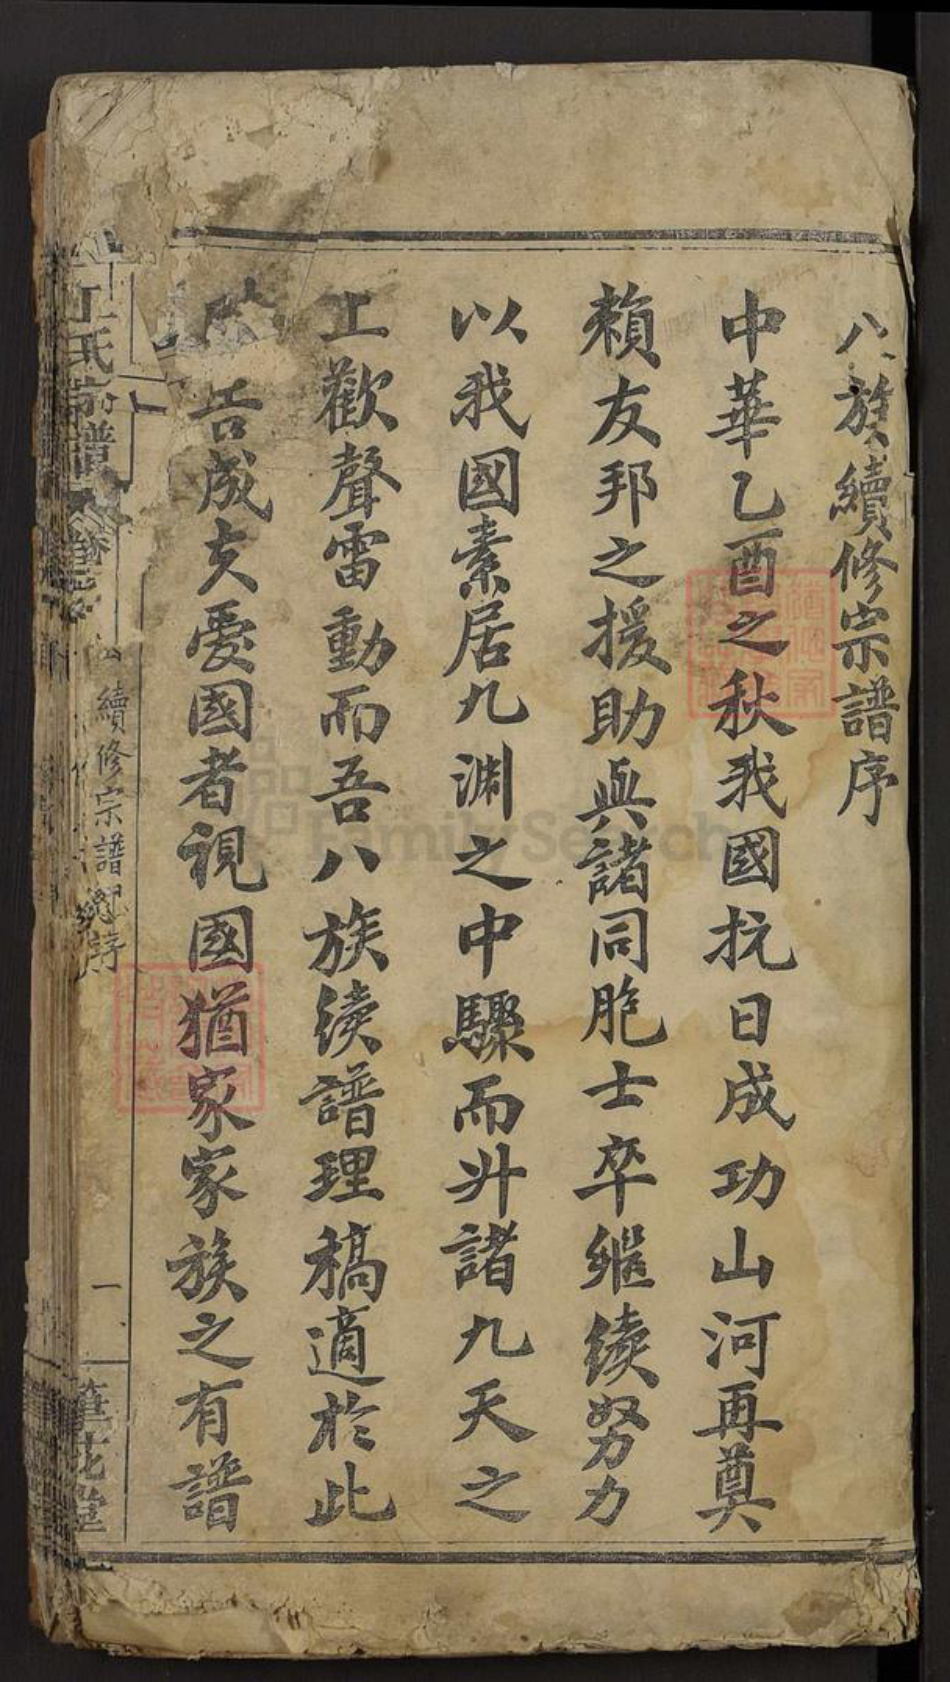 八族續修宗譜序
中華乙酉之秋我國抗日成功山河再奠
賴友邦之援助與諸同胞士卒繼續努力
以我國素居九渊之中驟而升諸九天之
上歡聲雷動而吾八族续譜理稿適於此
告成夫愛國者視國猶家家族之有譜
氏宗譜
續修宗譜總序
一
筆花堂
FamilySearch